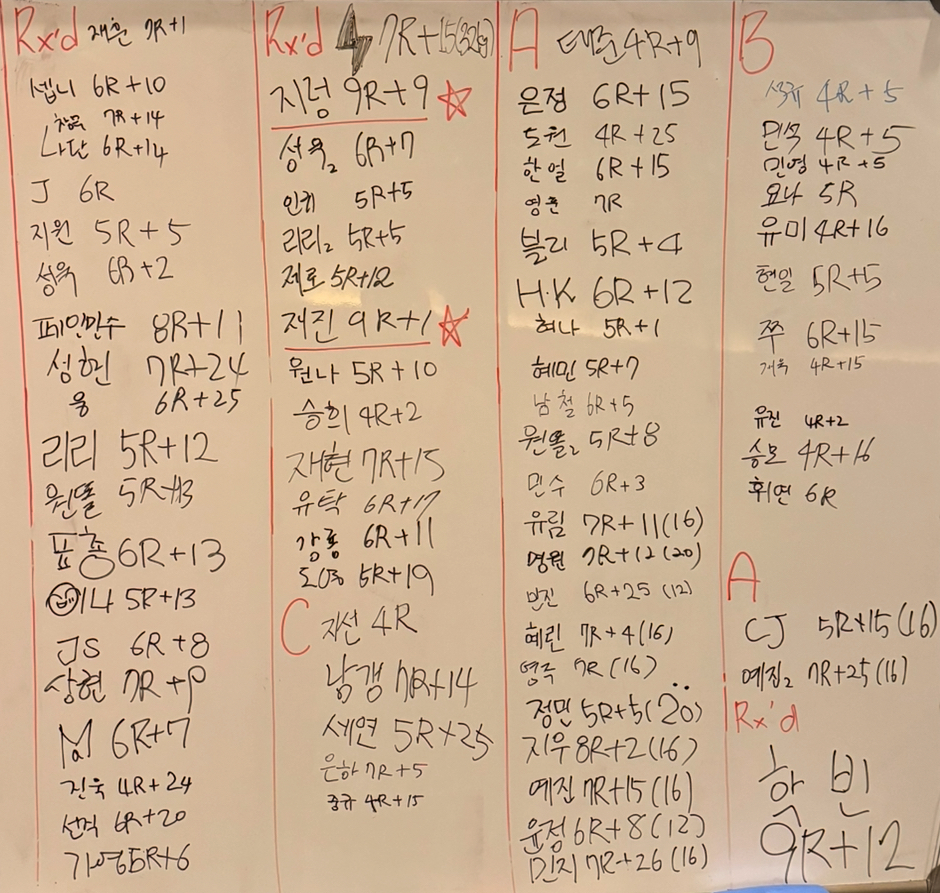 Rx'd 재훈 7R+1
셉니 6R+10
창묵 7R+14
나단 6R+14
J 6R
지원 5R+5
성욱 6R+2
페인만수 8R+11
성현 7R+24
웅 6R+25
리리 5R+12
원똘 5R+13
표총 6R+13
이나 5R+13
JS 6R+8
상현 7R+9
M 6R+7
진욱 4R+24
선직 6R+20
가영 5R+6
Rx'd 7R+15(32kg)
지렁 9R+9
성욱2 6R+7
인귀 5R+5
리리2 5R+5
제로 5R+12
재진 9R+1
원나 5R+10
승희 4R+2
재현 7R+15
유탁 6R+17
강룡 6R+11
도영 5R+19
C 지선 4R
남갱 7R+14
세연 5R+25
은하 7R+5
중규 4R+15
A 태준 4R+9
은정 6R+15
도원 4R+25
한얼 6R+15
영훈 7R
블리 5R+4
H.K 6R+12
허나 5R+1
혜민 5R+7
남철 6R+5
원똘2 5R+8
민수 6R+3
유림 7R+11(16)
명원 7R+12(20)
민진 6R+25(12)
혜린 7R+4(16)
영주 7R(16)
정민 5R+5(20)
지우 8R+2(16)
예진 7R+15(16)
윤정 6R+8(12)
민지 7R+26(16)
B
4R+5
민욱 4R+5
민영 4R+5
요나 5R
유미 4R+16
현일 5R+5
쭈 6R+15
4R+15
유진 4R+2
승모 4R+16
휘연 6R
A
CJ 5R+15(16)
예진2 7R+25(16)
Rx'd
학빈
9R+12